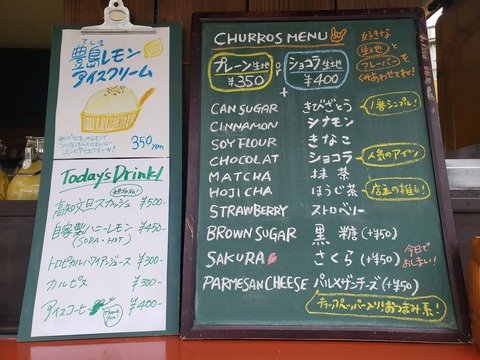 てしま
豊島レモン
アイスクリーム
350yen
Today's Drink!
高知文旦スカッシュ ¥500-
自家製ハニーレモン ¥450-
(SODA・HOT)
トロピカルハワイアンジュース ¥300-
カルピス ¥300-
アイスコーヒー ¥400-
Thank you!
CHURROS MENU
プレーン生地 ¥350
or
ショコラ生地 ¥400
+
好きな
生地と
フレーバーを
くみあわせてネ!
CAN SUGAR きびざとう
1番シンプル!
CINNAMON シナモン
SOY FLOUR きなこ
CHOCOLAT ショコラ
人気のアイツ
MATCHA 抹茶
HOJICHA ほうじ茶
店主の推し!
STRAWBERRY ストロベリー
BROWN SUGAR 黒糖 (+¥50)
SAKURA さくら (+¥50)
今日で
おしまい!
PARMESAN CHEESE パルメザンチーズ (+¥50)
ブラックペッパー入り!おつまみ系!